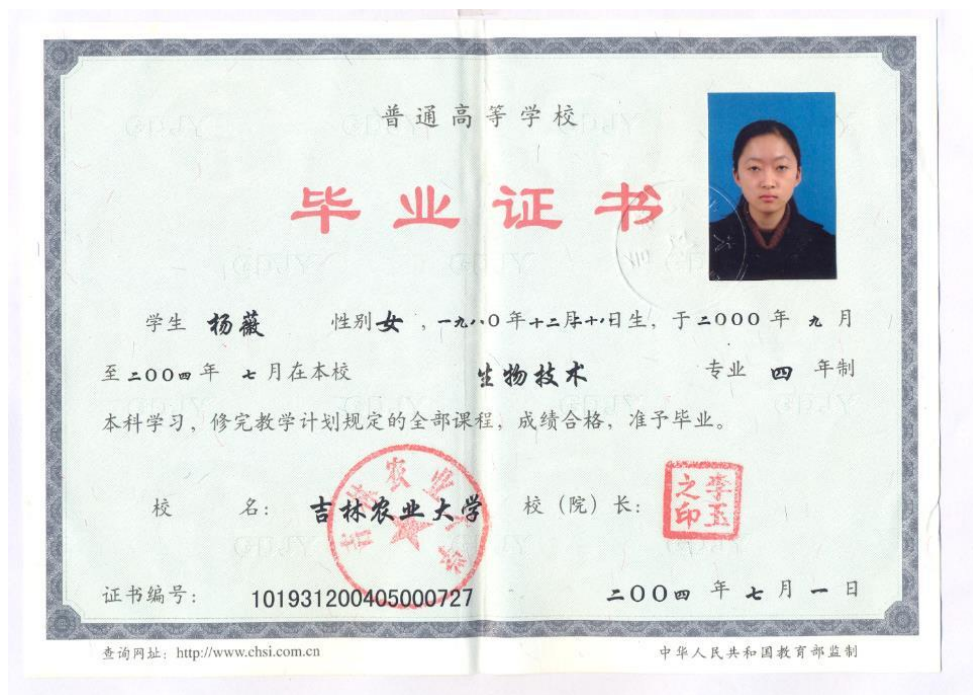 普通高等学校
毕业证书
学生 杨薇 性别女，一九八〇年十二月十八日生，于二〇〇〇年九月
至二〇〇四年 七月在本校 生物技术 专业 四 年制
本科学习，修完教学计划规定的全部课程，成绩合格，准予毕业。
校 名：吉林农业大学 校（院）长：
吉林农业大学
李玉之印
证书编号：101931200405000727 二〇〇四年七月一日
查询网址：http://www.chsi.com.cn 中华人民共和国教育部监制